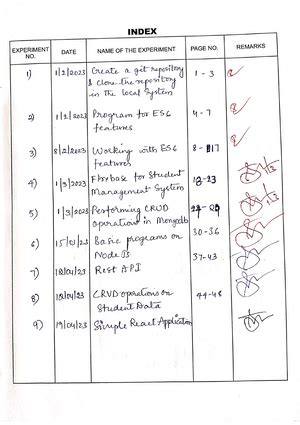 INDEX
EXPERIMENT NO. DATE NAME OF THE EXPERIMENT PAGE NO. REMARKS
1) 1/2/2023 Create a git repository 1 - 3
& clone the repository
in the local system
2) 1/2/2023 Program for ES6 4 - 7
features
3) 8/2/2023 Working with ES6 8 - 17
features
4) 1/3/2023 Flexbase for Student 18-23
Management System
5) 1/3/2023 Performing CRUD
operation in Mongodb
6) 15/03/23 Basic programs on 30-36
Node JS
7) Rest API 37-43
8) 12/04/23 CRUD operations on 44-48
Student Data
9) 19/04/23 Simple React Application